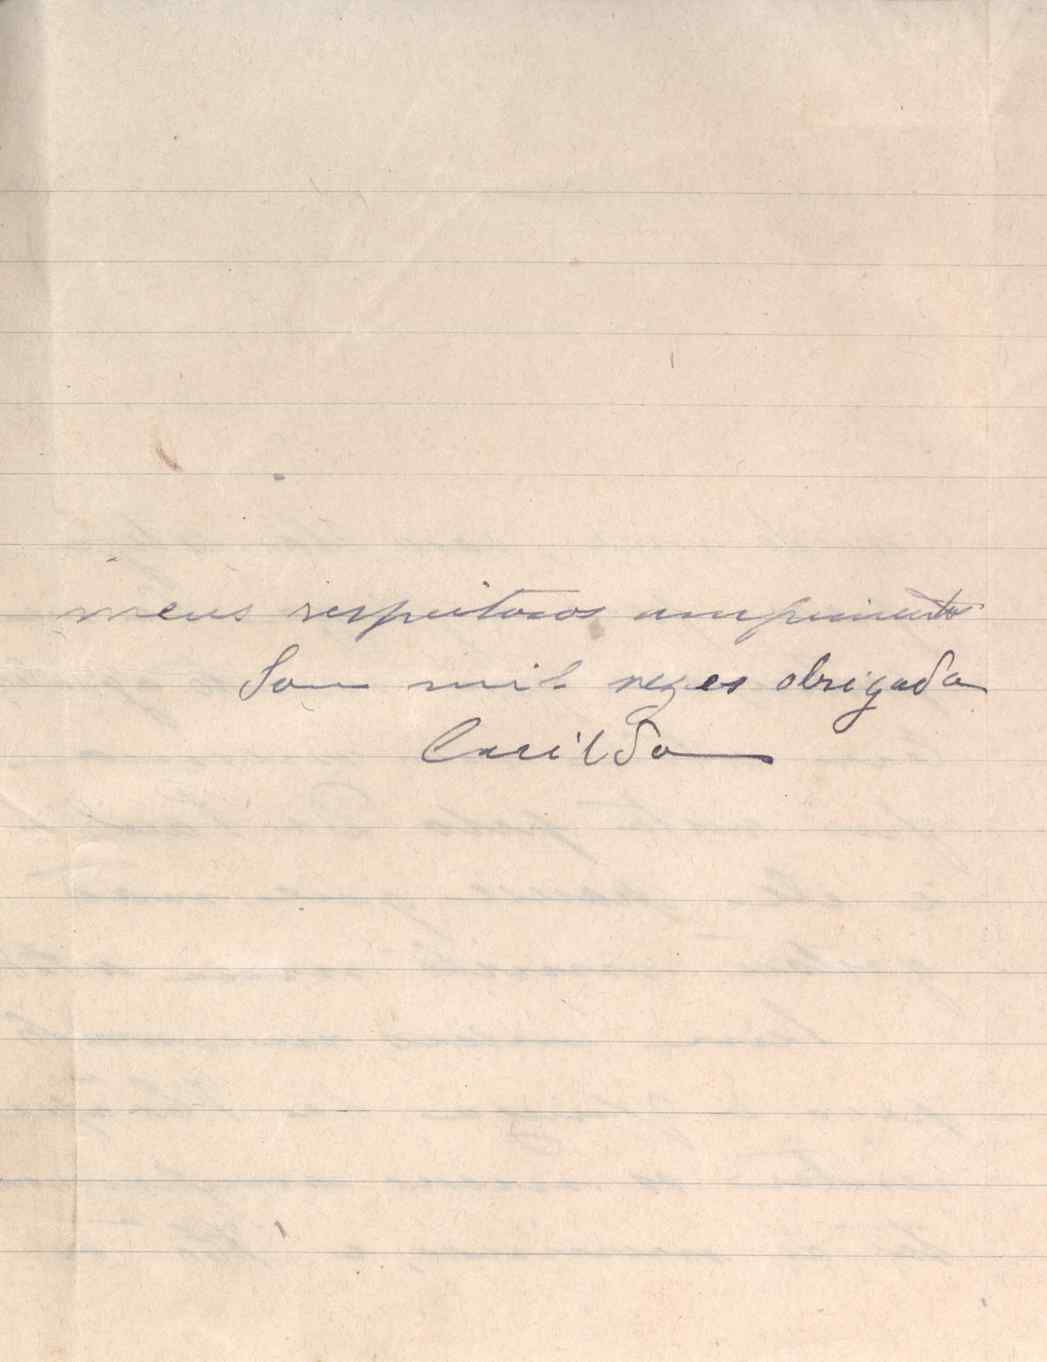 meus respeitosos cumprimentos
Sou mil vezes obrigada
Casilda